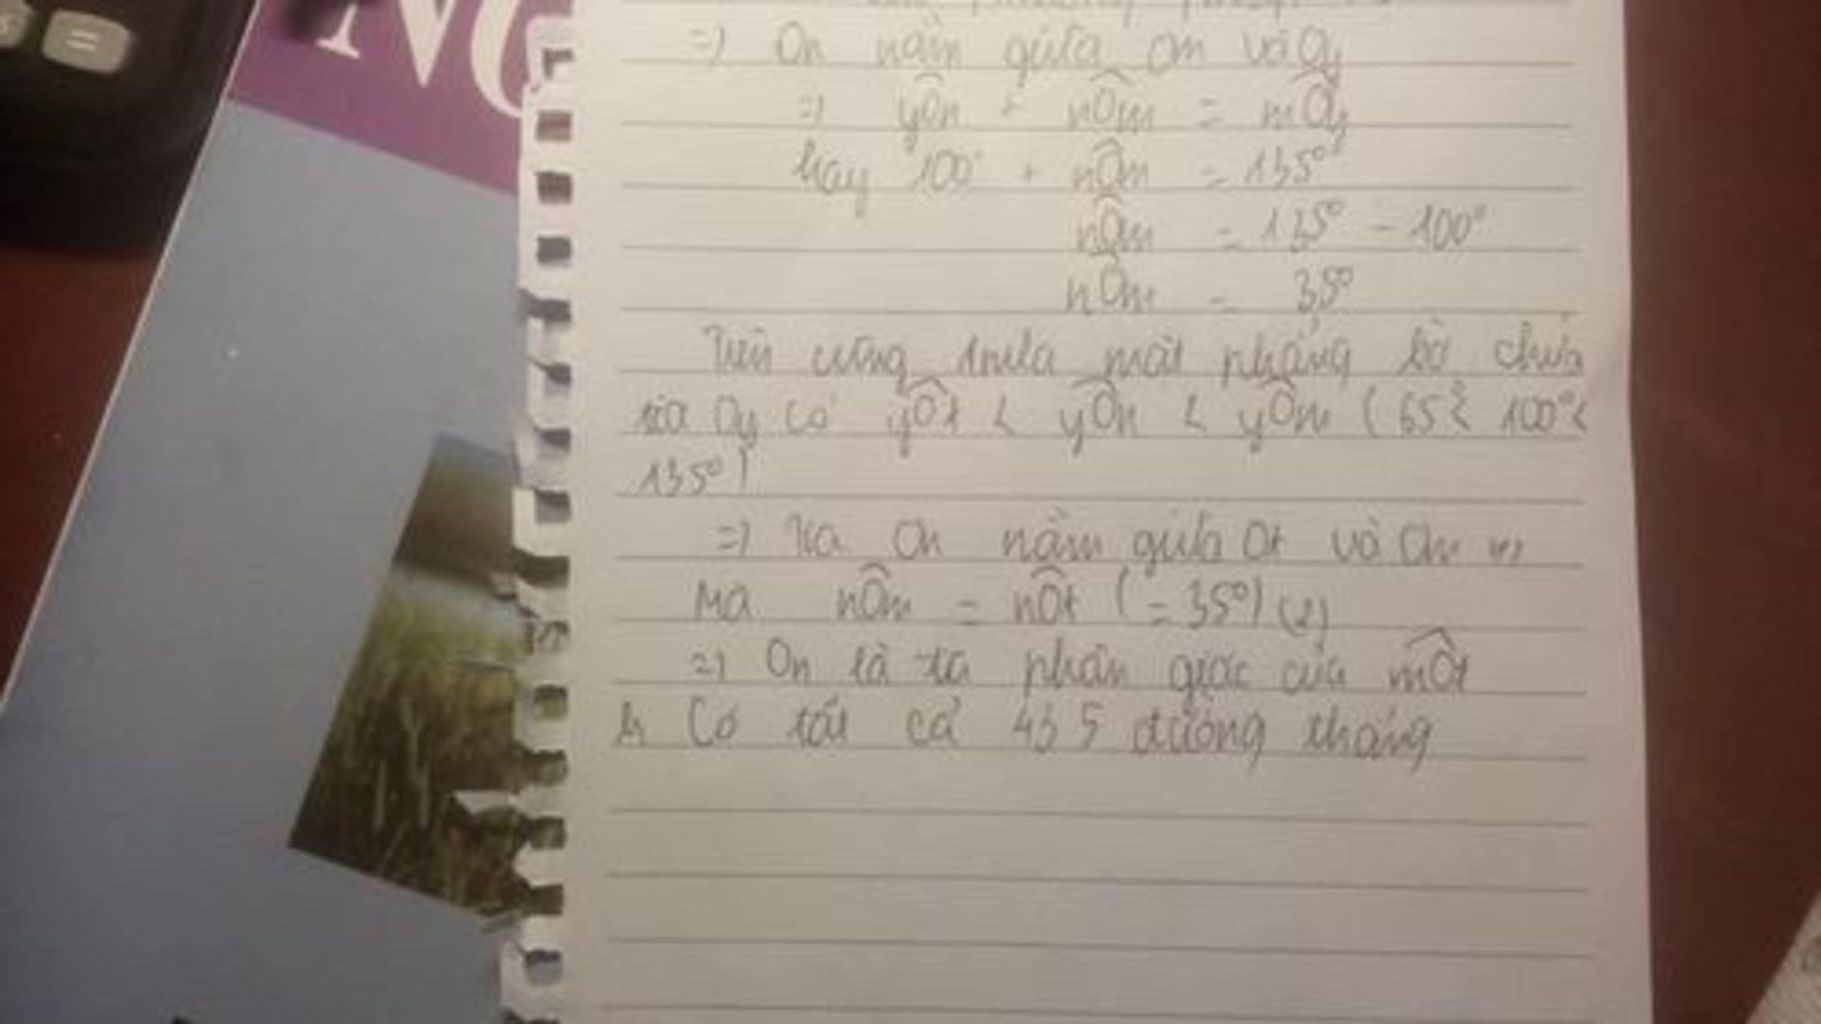 =
NG
=) On nằm giữa Om và Oy
=) yÔn + nÔm = mÔy
hay 100° + nÔm = 135°
nÔm = 135° - 100°
nÔm = 35°
Trên cùng 1 nửa mặt phẳng bờ chứa
tia Oy có yÔt < yÔn < yÔm ( 65° < 100° <
135°)
=) tia On nằm giữa Ot và Om (1)
Mà nÔm = nÔt ( = 35°) (2)
=) On là tia phân giác của mÔt
Có tất cả 435 đường thẳng